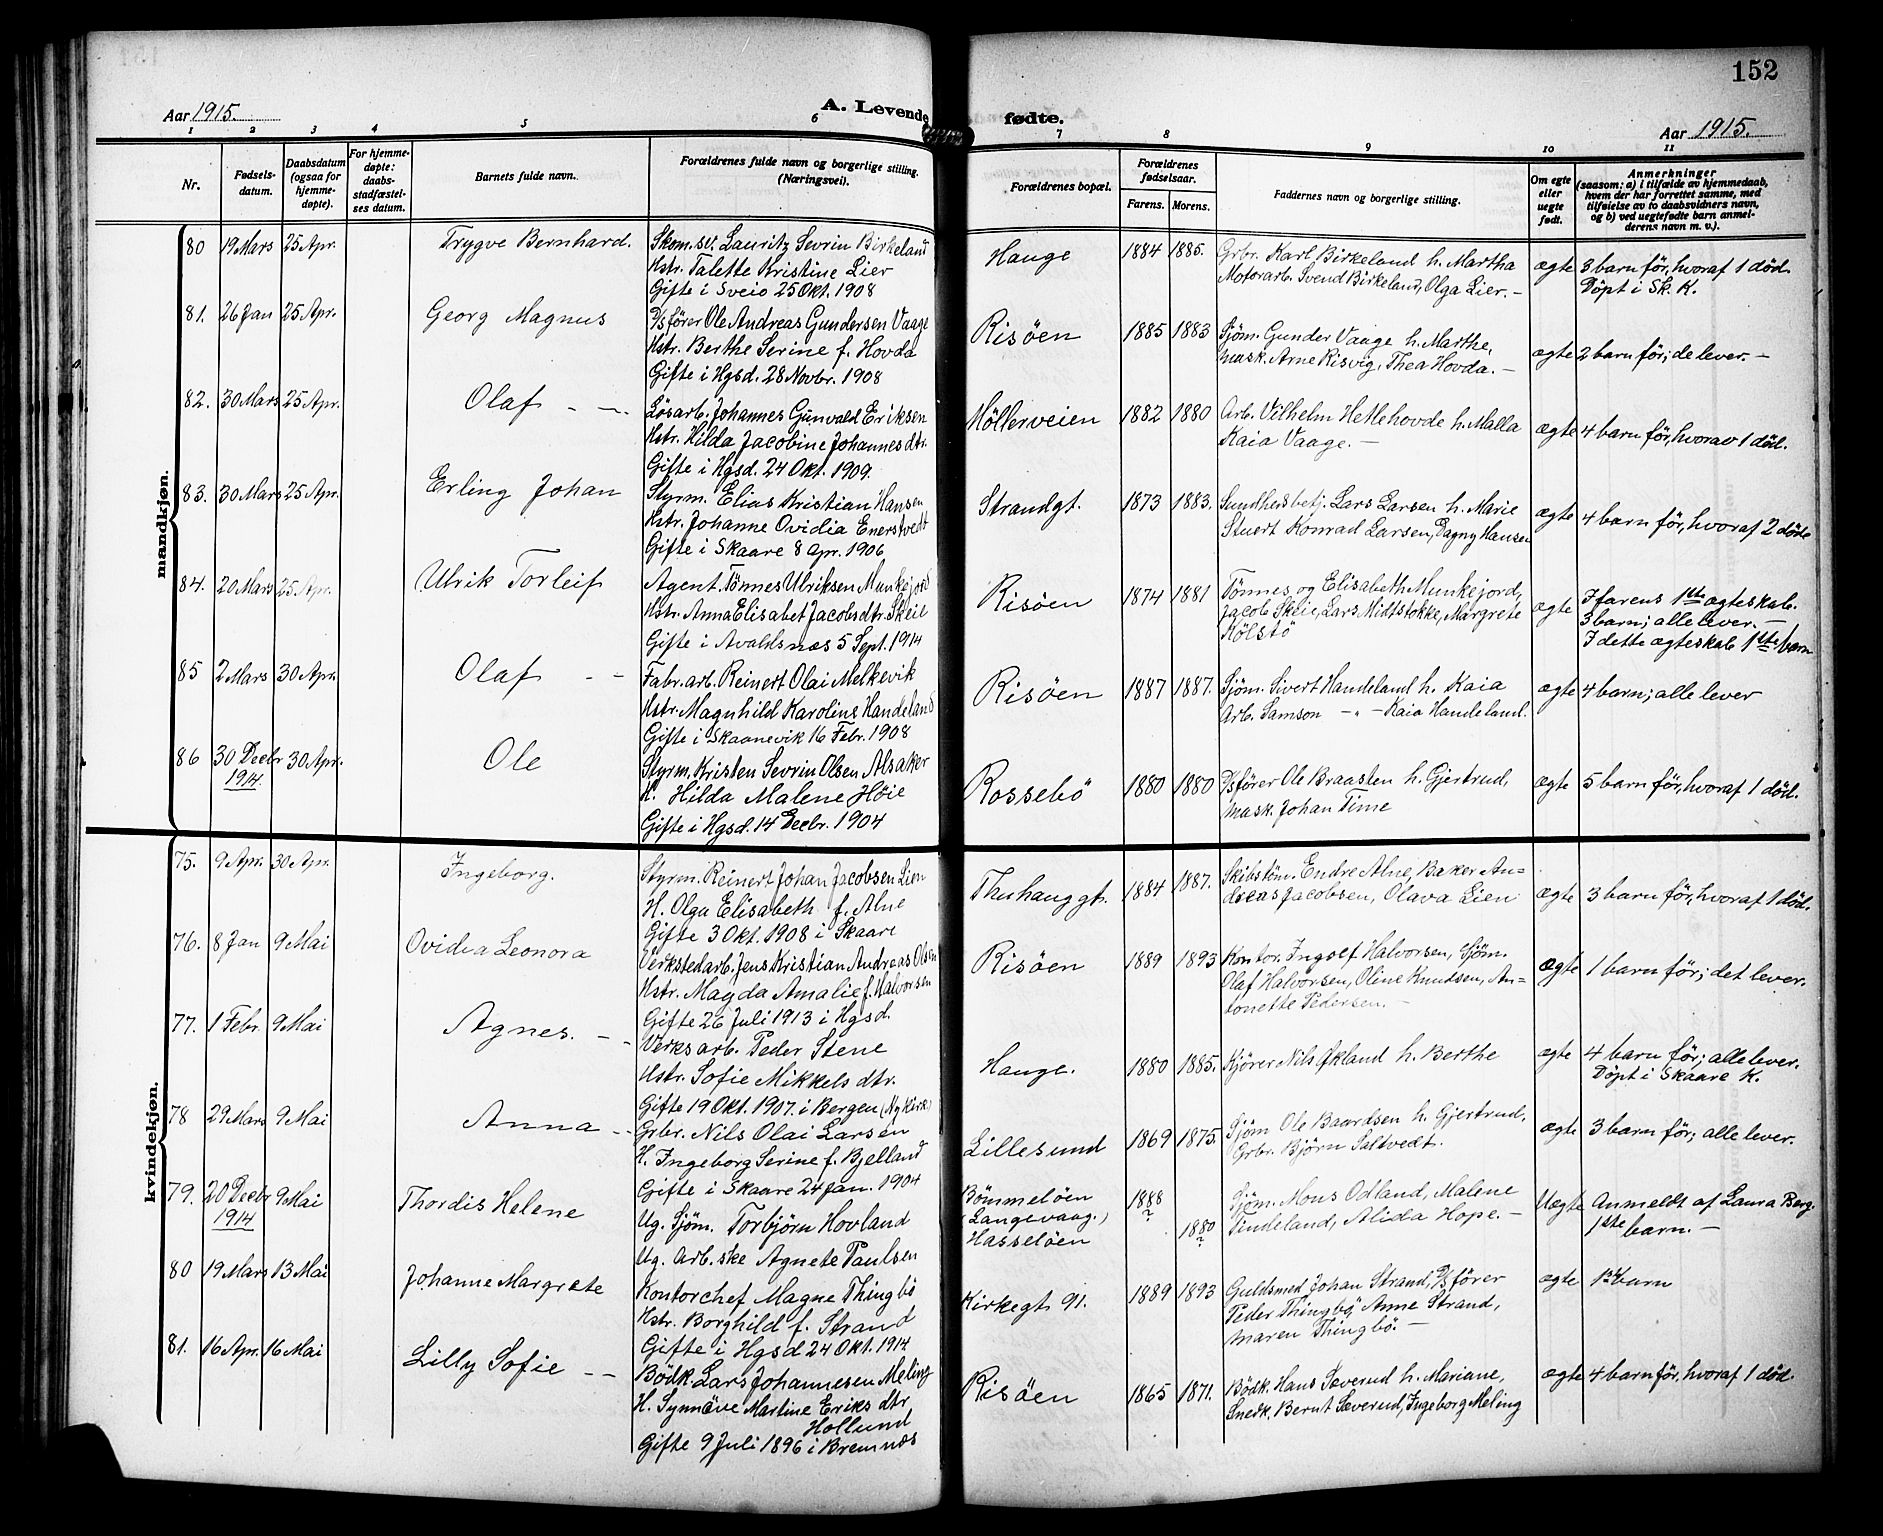 152
Aar 1915.
A. Levende fødte.
Aar 1915.
1 2 3 4 5 6 7 8 9 10 11
Nr.
Fødsels-
datum.
Daabsdatum
(ogsaa for
hjemme-
døpte).
For hjemme-
døpte:
daabs-
stadfæstel-
ses datum.
Barnets fulde navn.
Forældrenes fulde navn og borgerlige stilling.
(Næringsvei).
Forældrenes bopæl.
Forældrenes
fødselsaar.
Farens. Morens.
Faddernes navn og borgerlige stilling.
Om egte
eller
uegte
født.
Anmerkninger
(saasom: a) i tilfælde av hjemmedaab,
hvem der har forrettet samme, med
tilføielse av to daabsvidners navn,
og b) ved uegtefødte barn anmel-
derens navn m. v.).
mandkjøn.
80 19 Mars 25 Apr. Trygve Bernhard.
Skom.sv. Lauritz Sevrin Birkeland
Hstr. Talette Kristine Lier
Gifte i Sveio 25 Okt. 1908
Hauge 1884 1885.
Grbr. Karl Birkeland h. Martha
Motorarb. Svend Birkeland, Olga Lier. -
ægte 3 barn før, hvoraf 1 död.
Döpt i Sk. K.
81. 26 Jan 25 Apr. Georg Magnus
D/s fører Ole Andreas Gundersen Vaage
Hstr. Berthe Serine f. Hovda
Gifte i Hgsd. 28 Novbr. 1908
Risöen 1885 1883
Sjöm. Gunder Vaage h. Marthe,
Mask. Arne Risvig, Thea Hovda. -
ægte 2 barn før; de lever. -
82. 30 Mars 25 Apr. Olaf - -
Løsarb. Johannes Gunvald Eriksen
Hstr. Hilda Jacobine Johannesdtr.
Gifte i Hgsd. 24 Okt. 1909.
Möllerveien 1882 1880
Arb. Vilhelm Hetlehovde h. Malla
Kaia Vaage. -
ægte 4 barn før, hvorav 1 död.
83. 30 Mars 25 Apr. Erling Johan
Styrm. Elias Kristian Hansen
Hstr. Johanne Ovidia Enerstvedt
Gifte i Skaare 8 Apr. 1906
Strandgt. 1873 1883.
Sundhedsbetj. Lars Larsen h. Marie
Stuert Konrad Larsen, Dagny Hansen
ægte 4 barn før, hvoraf 2 döde
84. 20 Mars 25 Apr. Ulrik Torleif
Agent Tönnes Ulriksen Munkejord
Hstr. Anna Elisabet Jacobsdtr. Skeie
Gifte i Avaldsnæs 5 Sept. 1914
Risöen 1874 1881
Tönnes og Elisabeth Munkejord,
Jacob Skeie, Lars Midtstokke, Margrete
Kölstö
ægte I farens 1ste ægteskab.
3 barn; alle lever. -
I dette ægteskab 1ste barn
85 2 Mars 30 Apr. Olaf - -
Fabr. arb. Reinert Olai Melkevik
Hstr. Magnhild Karoline Handeland
Gifte i Skaanevik 16 Febr. 1908
Risöen 1887 1887.
Sjöm. Sivert Handeland h. Kaia
Arb. Samson - " - Kaia Handeland.
ægte 4 barn; alle lever
86 30 Decbr 30 Apr. Ole
1914.
Styrm. Kristen Sevrin Olsen Alsaker
H. Hilda Malene Höie
Gifte i Hgsd. 14 Decbr. 1904
Rossebö 1880 1880
D/s fører Ole Braasten h. Gjertrud,
Mask. Johan Time
ægte 5 barn før, hvoraf 1 död.
kvindekjøn.
75. 9 Apr. 30 Apr. Ingeborg.
Styrm. Reinert Johan Jacobsen Lien
H. Olga Elisabeth f. Alne
Gifte 3 Okt. 1908 i Skaare
Thuhauggt. 1884 1887.
Skibstöm. Endre Alne, Baker An-
dreas Jacobsen, Olava Lien
ægte 3 barn før, hvoraf 1 död.
76. 8 Jan 9 Mai Ovidia Leonora
Verkstedarb. Jens Kristian Andreas Olsen
Hstr. Magda Amalie f. Halvorsen
Gifte 26 Juli 1913 i Hgsd.
Risöen 1889 1893
Kontor. Ingolf Halvorsen, Sjöm.
Olaf Halvorsen, Oline Knudsen, An-
tonette Pedersen. -
Ægte 1 barn før; det lever.
77. 1 Febr. 9 Mai Agnes. - -
Verksarb. Peder Stene
Hstr. Sofie Mikkels dtr.
Gifte 19 Okt. 1907. i Bergen (Nykirk.)
Hauge. 1880 1885.
Kjörer Nils Økland h. Berthe
ægte 4 barn før; alle lever.
Döpt i Skaare K.
78 29 Mars 9 Mai Anna - -
Grbr. Nils Olai Larsen
H. Ingeborg Serine f. Bjelland
Gifte i Skaare 24 Jan. 1904
Lillesund 1869 1875.
Sjöm Ole Baardsen h. Gjertrud,
Grbr. Björn Saltvedt.
ægte 3 barn før; alle lever.
79. 20 Decbr 9 Mai Thordis Helene
1914
Ug. Sjöm. Torbjörn Hovland
Ug. Arb.ske Agnete Paulsen
Bömmelöen
(Langevaag.)
Hasselöen
1888
?
1880
?
Sjöm. Mons Odland, Malene
Tindeland, Alida Hope. -
Uægte Anmeldt af Laura Berg.
1ste barn. -
80 19 Mars 13 Mai Johanne Margrete
Kontorchef Magne Thingbö
Hstr. Borghild f. Strand
Gifte i Hgsd 24 Okt. 1914
Kirkegt. 91. 1889 1893
Guldsmed Johan Strand, D/s fører
Peder Thingbö, Anne Strand,
Maren Thingbö. -
ægte 1ste barn
81. 16 Apr. 16 Mai Lilly Sofie - -
Bödk. Lars Johannesen Meling
H. Synnöve Martine Eriks dtr
Hollund
Gifte 9 Juli 1896 i Bremnæs
Risöen 1865 1871.
Bödk. Hans Sæverud h. Mariane,
Snedk. Bernt Sæverud, Ingeborg Meling
ægte 4 barn før, hvoraf 1 död.